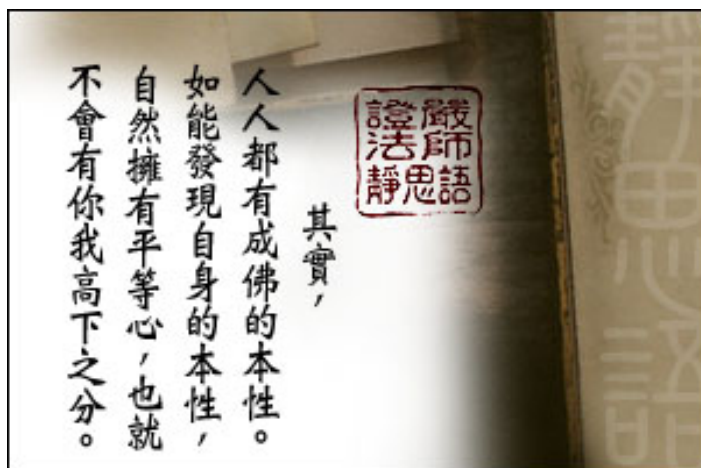 靜思語
證嚴
法師
靜思語
其實，
人人都有成佛的本性。
如能發現自身的本性，
自然擁有平等心，也就
不會有你我高下之分。